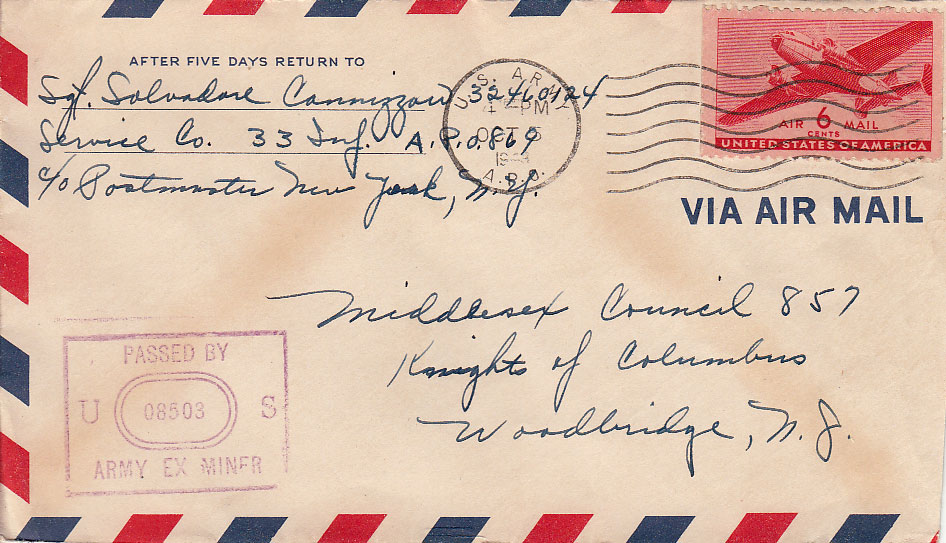 AFTER FIVE DAYS RETURN TO
Sgt. Salvadore Cannizzaro 32460124
Service Co. 33 Inf. A.P.O. 869
c/o Postmaster New York, N.Y.
U.S. ARMY
4 PM
OCT 5
A.P.O.
AIR 6 MAIL
CENTS
UNITED STATES OF AMERICA
VIA AIR MAIL
Middlesex Council 857
Knights of Columbus
Woodbridge, N.J.
PASSED BY
U 08503 S
ARMY EX MINER